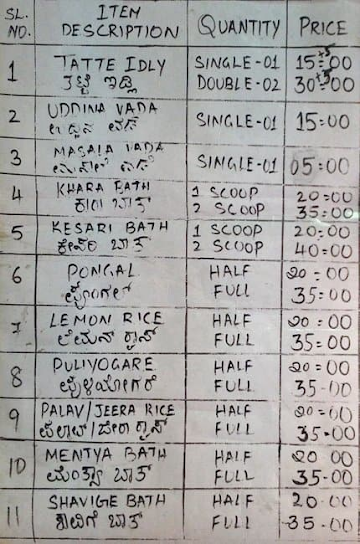 SL. NO. ITEM DESCRIPTION QUANTITY PRICE
1 TATTE IDLY SINGLE-01 15=00
ತಟ್ಟೆ ಇಡ್ಲಿ DOUBLE-02 30=00
2 UDDINA VADA SINGLE-01 15=00
ಉದ್ದಿನ ವಡೆ
3 MASALA VADA SINGLE-01 05=00
ಮಸಾಲೆ ವಡೆ
4 KHARA BATH 1 SCOOP 20=00
ಖಾರಾ ಬಾತ್ 2 SCOOP 35=00
5 KESARI BATH 1 SCOOP 20=00
ಕೇಸರಿ ಬಾತ್ 2 SCOOP 40=00
6 PONGAL HALF 20=00
ಪೊಂಗಲ್ FULL 35=00
7 LEMON RICE HALF 20=00
ಲೆಮನ್ ರೈಸ್ FULL 35=00
8 PULIYOGARE HALF 20=00
ಪುಳಿಯೋಗರೆ FULL 35-00
9 PALAV/JEERA RICE HALF 20=00
ಪಲಾವ್/ಜೀರಾ ರೈಸ್ FULL 35=00
10 MENTYA BATH HALF 20 00
ಮೆಂತ್ಯಾ ಬಾತ್ FULL 35-00
11 SHAVIGE BATH HALF 20-00
ಶಾವಿಗೆ ಬಾತ್ FULL 35-00